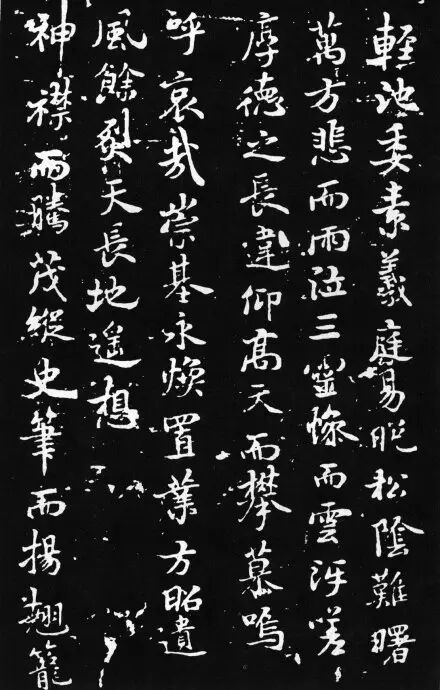 輕池委素羲庭易晚松陰難曙
萬方悲而雨泣三靈慘而雲浮嗟
厚德之長違仰高天而攀慕嗚
呼哀哉崇基永煥置業方昭遺
風餘烈天長地遥想
神襟而騰茂縱史筆而揚翹籠